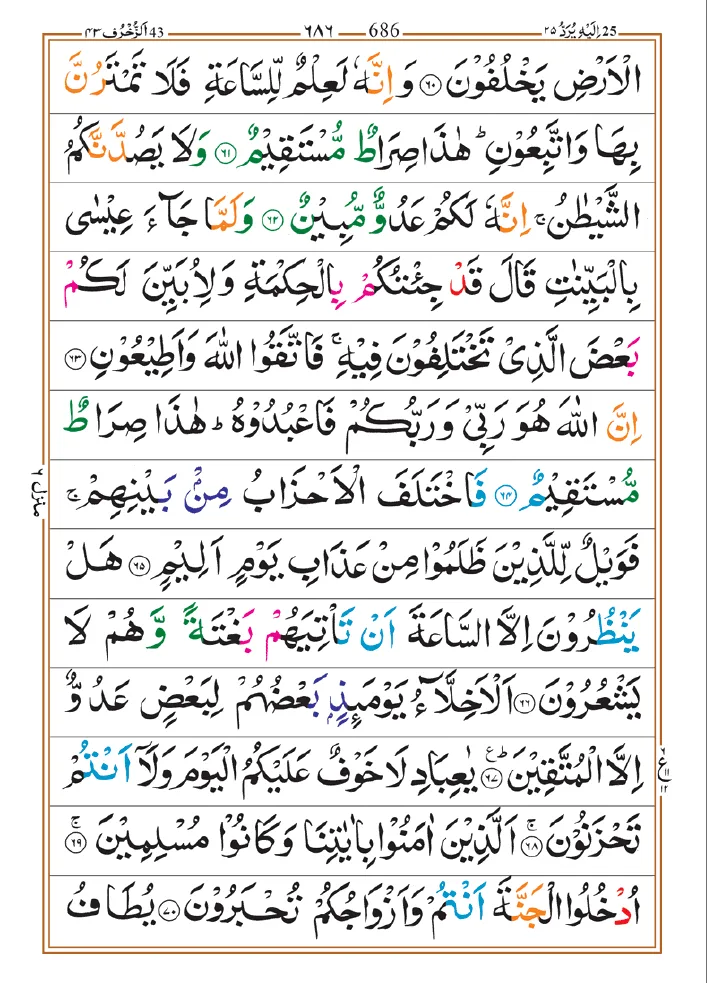 25 اِلَیْهِ یُرَدُّ ۲۵ 686 ۶۸۶ 43 اَلزُّخْرُف ۴۳
الْاَرْضِ یَخْلُفُوْنَ ﴿۶۰﴾ وَ اِنَّهٗ لَعِلْمٌ لِّلسَّاعَةِ فَلَا تَمْتَرُنَّ
بِهَا وَ اتَّبِعُوْنِ ؕ هٰذَا صِرَاطٌ مُّسْتَقِیْمٌ ﴿۶۱﴾ وَ لَا یَصُدَّنَّكُمُ
الشَّیْطٰنُ ۚ اِنَّهٗ لَكُمْ عَدُوٌّ مُّبِیْنٌ ﴿۶۲﴾ وَ لَمَّا جَآءَ عِیْسٰی
بِالْبَیِّنٰتِ قَالَ قَدْ جِئْتُكُمْ بِالْحِكْمَةِ وَ لِاُبَیِّنَ لَكُمْ
بَعْضَ الَّذِیْ تَخْتَلِفُوْنَ فِیْهِ ۚ فَاتَّقُوا اللّٰهَ وَ اَطِیْعُوْنِ ﴿۶۳﴾
اِنَّ اللّٰهَ هُوَ رَبِّیْ وَ رَبُّكُمْ فَاعْبُدُوْهُ ؕ هٰذَا صِرَاطٌ
مُّسْتَقِیْمٌ ﴿۶۴﴾ فَاخْتَلَفَ الْاَحْزَابُ مِنْۢ بَیْنِهِمْ ۚ
منزل ۶
فَوَیْلٌ لِّلَّذِیْنَ ظَلَمُوْا مِنْ عَذَابِ یَوْمٍ اَلِیْمٍ ﴿۶۵﴾ هَلْ
یَنْظُرُوْنَ اِلَّا السَّاعَةَ اَنْ تَاْتِیَهُمْ بَغْتَةً وَّ هُمْ لَا
یَشْعُرُوْنَ ﴿۶۶﴾ اَلْاَخِلَّآءُ یَوْمَىِٕذٍۭ بَعْضُهُمْ لِبَعْضٍ عَدُوٌّ
اِلَّا الْمُتَّقِیْنَ ﴿۶۷﴾ؕ ع یٰعِبَادِ لَا خَوْفٌ عَلَیْكُمُ الْیَوْمَ وَ لَاۤ اَنْتُمْ
ع ۱۱ ۱۲
تَحْزَنُوْنَ ﴿۶۸﴾ۚ اَلَّذِیْنَ اٰمَنُوْا بِاٰیٰتِنَا وَ كَانُوْا مُسْلِمِیْنَ ﴿۶۹﴾ۚ
اُدْخُلُوا الْجَنَّةَ اَنْتُمْ وَ اَزْوَاجُكُمْ تُحْبَرُوْنَ ﴿۷۰﴾ یُطَافُ